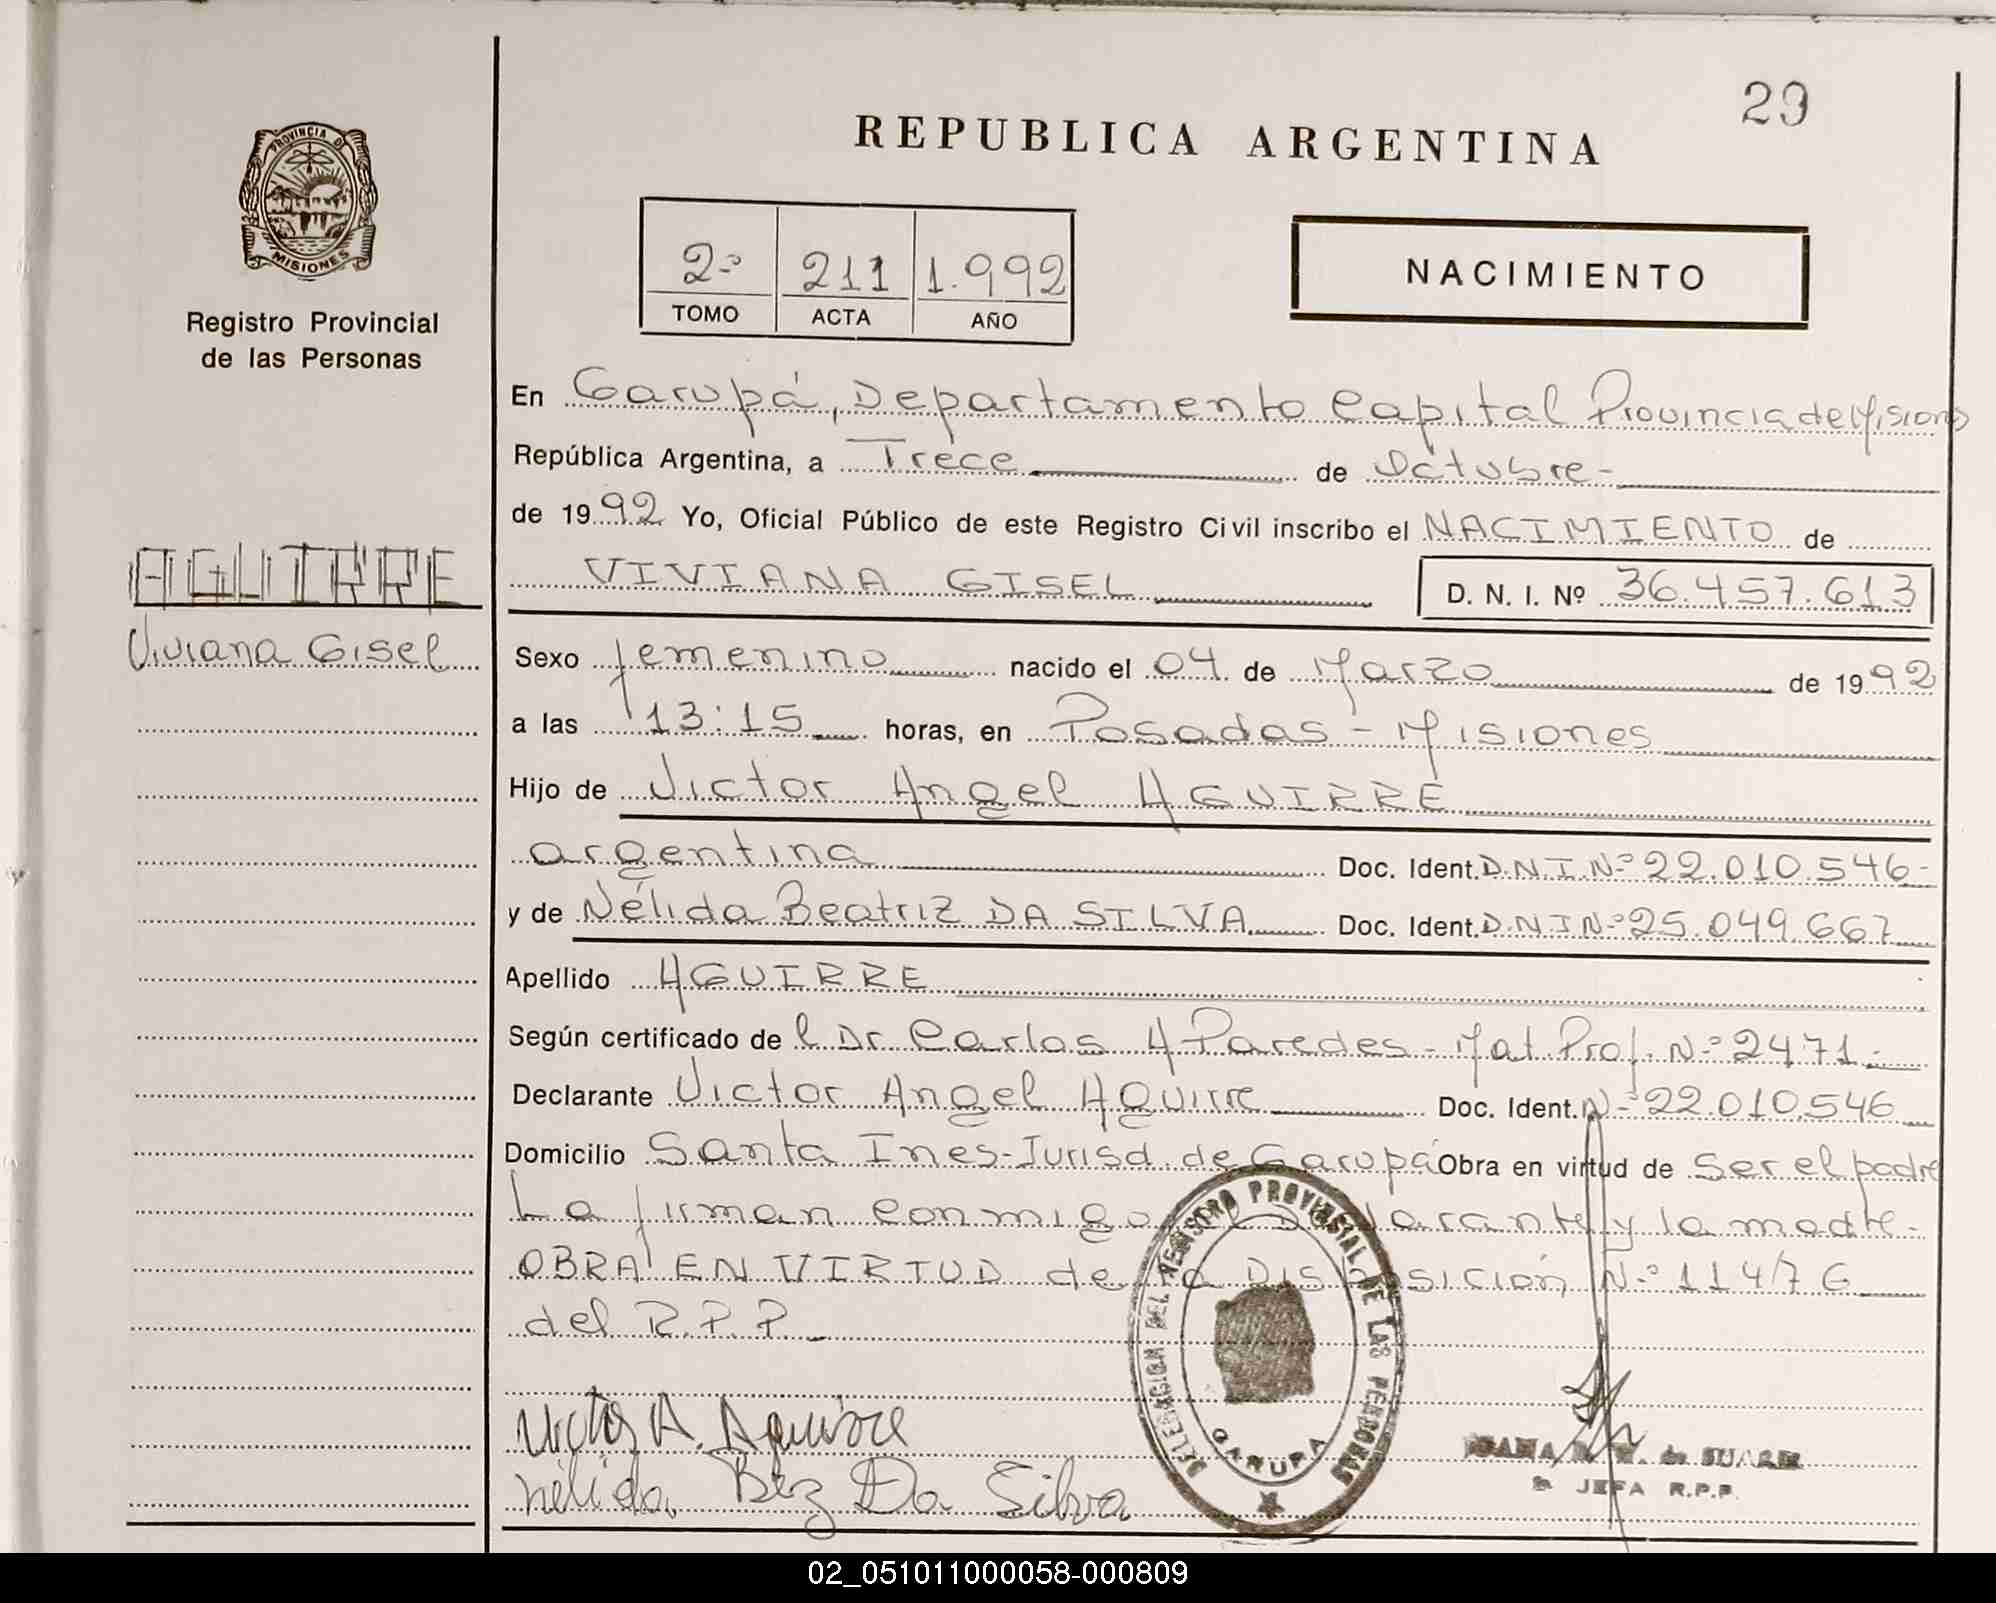 29
PROVINCIA DE
MISIONES
Registro Provincial
de las Personas
REPUBLICA ARGENTINA
2º 211 1.992
TOMO ACTA AÑO
NACIMIENTO
En Garupá, Departamento Capital Provincia de Misiones
República Argentina, a Trece de Octubre-
de 1992 Yo, Oficial Público de este Registro Civil inscribo el NACIMIENTO de
AGUIRRE
VIVIANA GISEL D. N. I. Nº 36.457.613
Viviana Gisel
Sexo femenino nacido el 04 de Marzo de 1992
a las 13:15 horas, en Posadas - Misiones
Hijo de Victor Angel AGUIRRE
argentina Doc. Ident. D.N.I.Nº 22.010.546-
y de Nélida Beatriz DA SILVA Doc. Ident. D.N.I Nº 25.049.667
Apellido AGUIRRE
Según certificado de l Dr Carlos A Paredes - Mat. Prof. Nº 2471.-
Declarante Victor Angel Aguirre Doc. Ident. Nº 22.010.546
Domicilio Santa Ines-Jurisd. de Garupá Obra en virtud de ser el padre
La firman conmigo y la madre.
OBRA EN VIRTUD de la Disposición Nº 114/76
del R.P.P.
Victor A. Aguirre
Nélida Btz Da Silva
PROVINCIAL DE LAS PERSONAS
GARUPA
de SUAREZ
JEFA R.P.P.
02_051011000058-000809